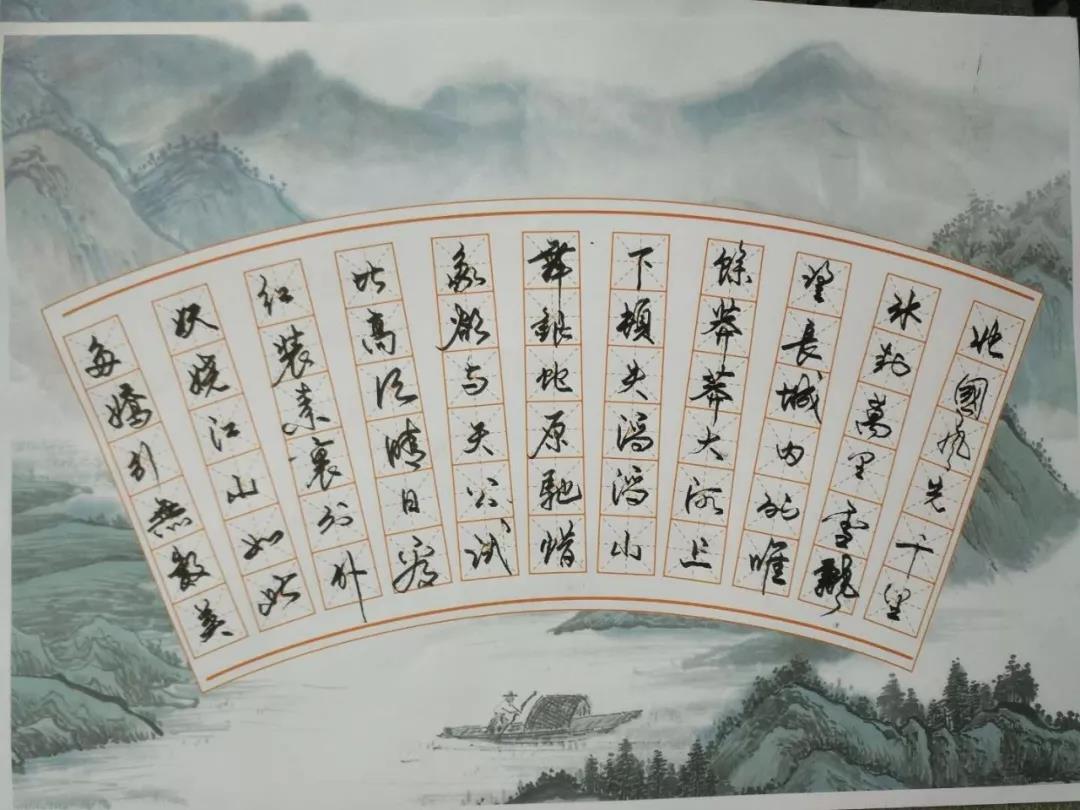 北國風光千里
冰封萬里雪飄
望長城内外唯
餘莽莽大河上
下頓失滔滔山
舞銀蛇原馳蜡
象欲与天公试
比高须晴日看
红装素裹分外
妖娆江山如此
多嬌引無數英